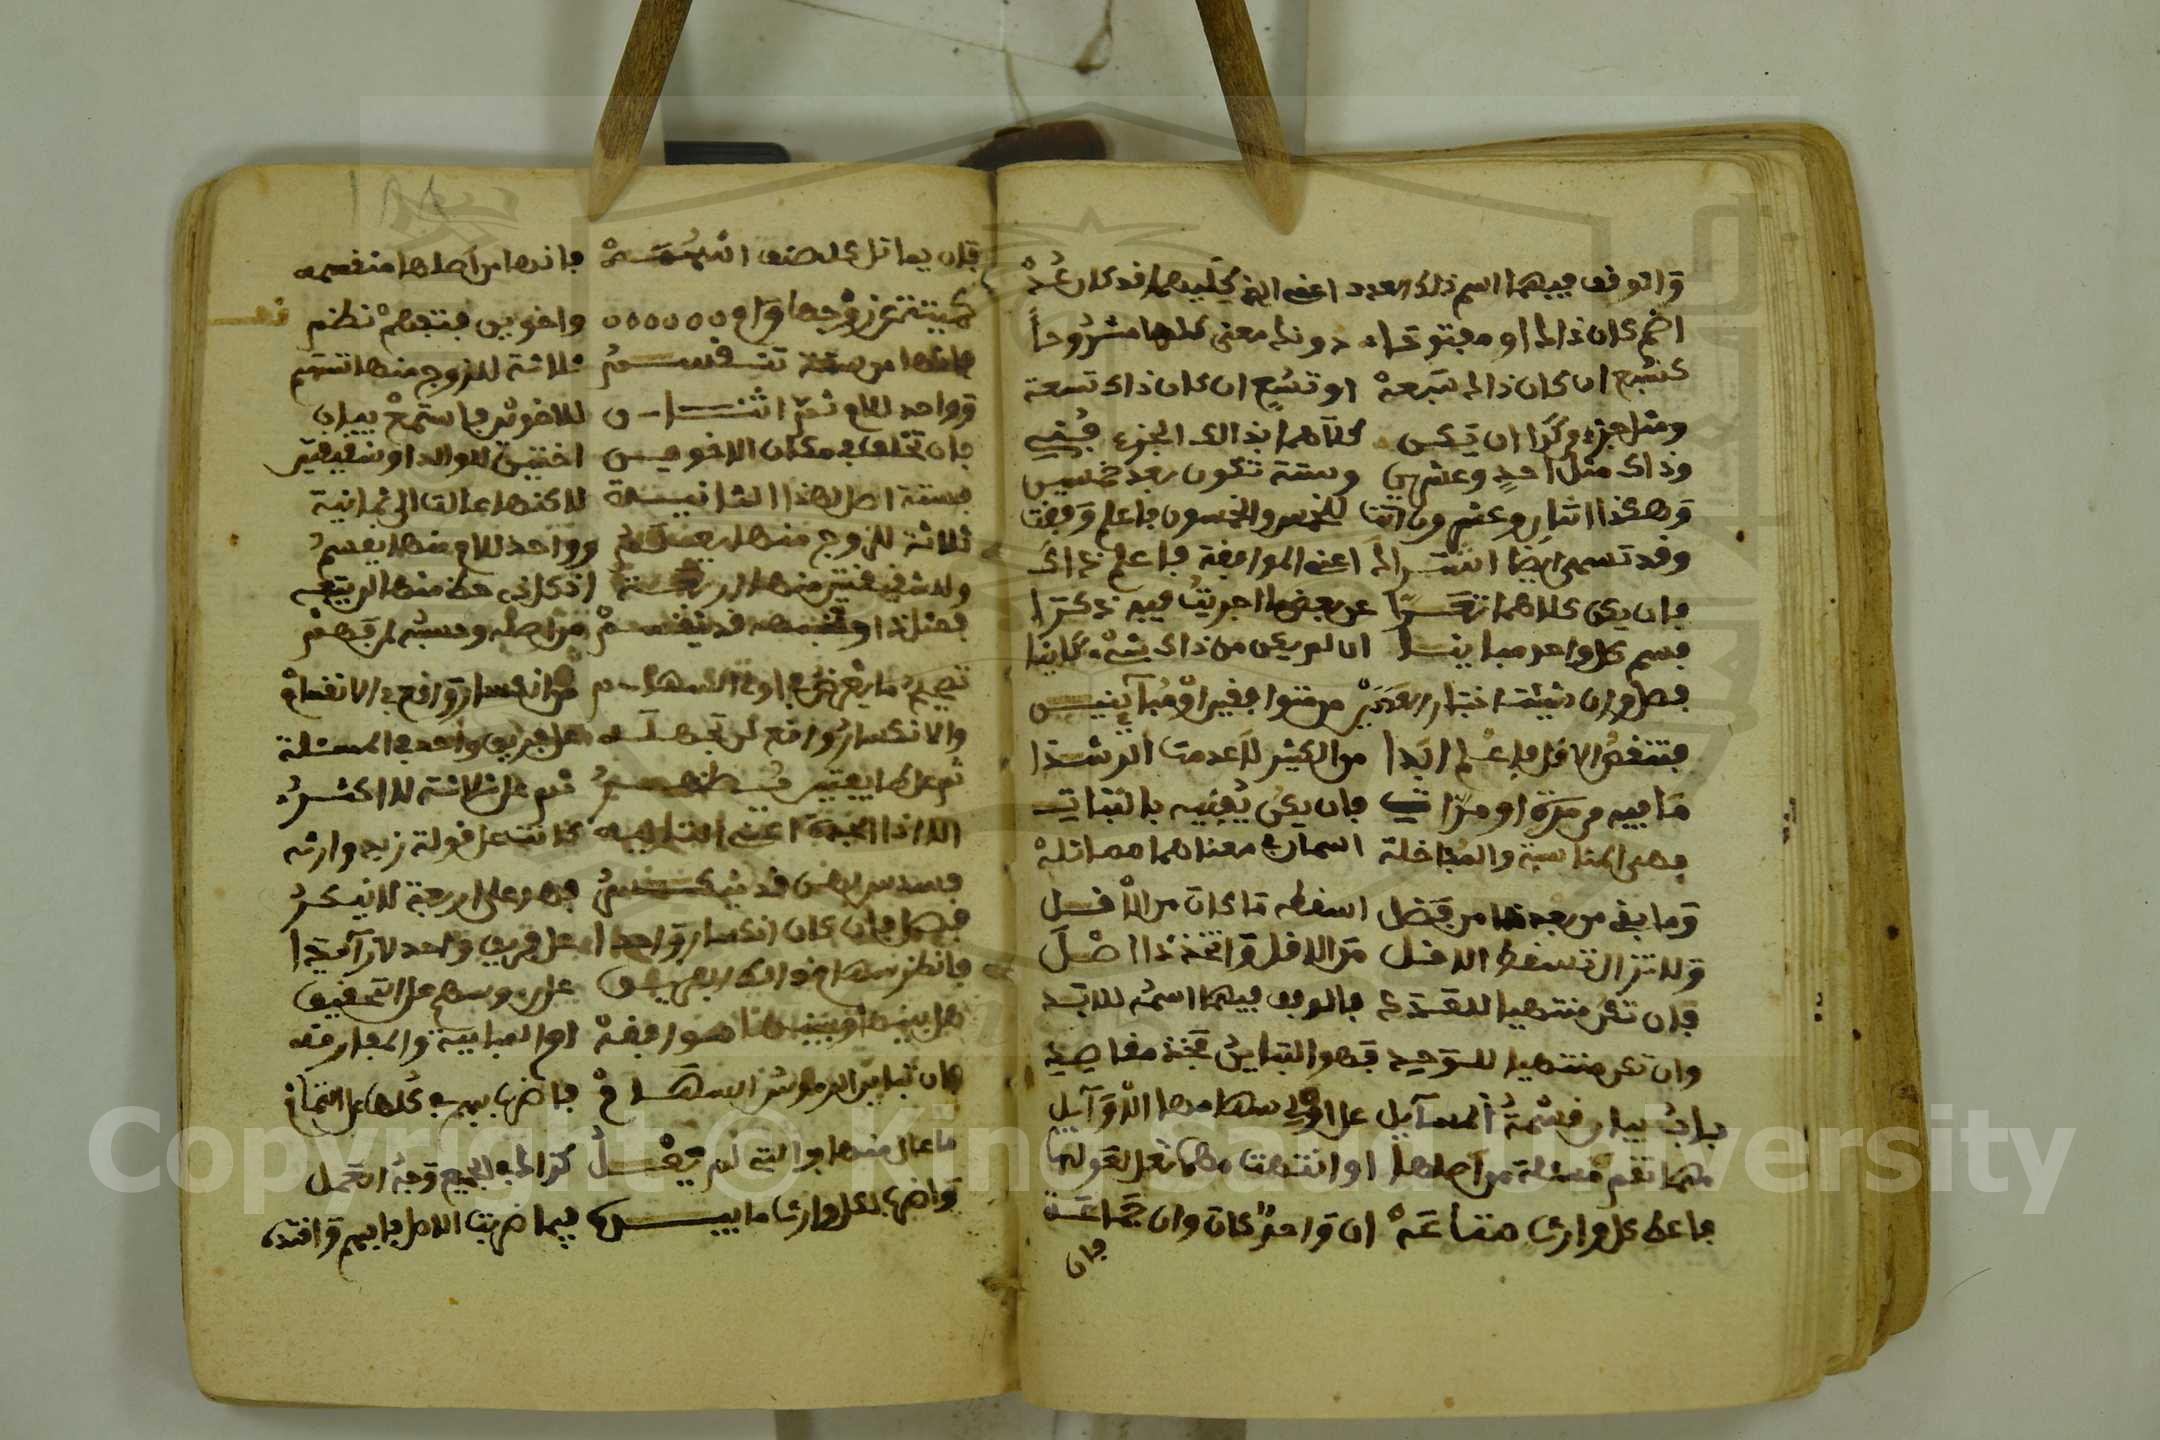 والوفق فيهما اسم ذلك العدد اعني الذي يحليهما فد كان عد
اصم كان ذاك او مفتوحا دونك معنى كلها مشروحا
كسبع ان كان ذاك سبعة او تسع ان كان ذاك تسعة
ومثل جزء وكذا ان يكن كلاهما بذالك الجزء فني
وذاك مثل احد وعشرين وستة تكون بعد خمسين
وهكذا اثنان وعشرون اتت للخمس والخمسون فاعلم وفقت
وقد تسمى ايضا اشتراك اعني الموافقة فاعلم ذاك
فان يكن كلاهما تعرا عن بعض ما اجريت فيه ذكرا
فسم كل واحد مباينا ان لم يكن من ذاك شيء كاينا
فصل وان شئت اختبار العددين من متوافقين او مباينين
فتنقص الاقل فاعلم ابدا من الكثير لا عدمت الرشدا
ما فيه من مرة او مرات فان يكن يفنيه بالثبات
فهي المناسبة والمداخلة اسمان معناهما مماثله
وما بقي من بعدها من فضل اسقطه ما كان من الاقل
ولا تزال تسقط الاقل من الاقل واتخذ ذا اصلا
فان تكن منتهيا للعدد فالوفق فيهما اسمه للابد
وان تكن منتهيا للوحد فهو التباين فخذ مقاصد
باب بيان قسمة المسايل على اولي سهامها الاوايل
مهما تقم مسئلة من اصلها او انتهت مهما تعل لعولها
فاعط كل وارث متاعه ان واحد كان وان جماعة
فان
فان يماثل كلا ضعف اسهمه فانها من اصلها منقسمه
كميتة عن زوجها وام ٥٥٥٥٥٥ واخوين فتفهم نظم
فانها من ستة تنقسم ثلاثة للزوج منها تسهم
وواحد للام ثم اثنان للاخوين فاستمع بيان
فان تخلف مكان الاخوين اختين للوالد او شقيقين
فستة اصل لهذا الثانية لاكنها عالت الى ثمانية
ثلاثة للزوج منها وواحد للام منها يقسم
وللشقيقتين منها الاربعة اذ كان حظ منها الربعه
فمثل ذا وشبهه قد ينقسم من اصله وحسبه لمن فهم
تصحيح ما يعرض في اولي السهام من انكسار واقع في الانقسام
والانكسار واقع لمن جهله على فريق واحد في المسئلة
ثم على ما يعتبر ثم على ثلاثة لا اكثر
الا اذا كانت على قولة زيد وارثه
فسدسهن قد ينكسر فهو على اربعة لا ينكر
فصل فان كان انكسار واحدا على فريق واحد لا زايدا
فانظر سهام ذالك الفريق على رءوسهم على التحقيق
هل بينها وبينها موافقة او المباينة والمفارقه
فان تباين الرءوس السهام فاضرب بهم في كلها على التمام
ما عال منها والتي لم تعل كذاك في الجميع وجه العمل
واضرب لكل وارث ما بيديه فيما ضربت الاصل فافهم واقتد